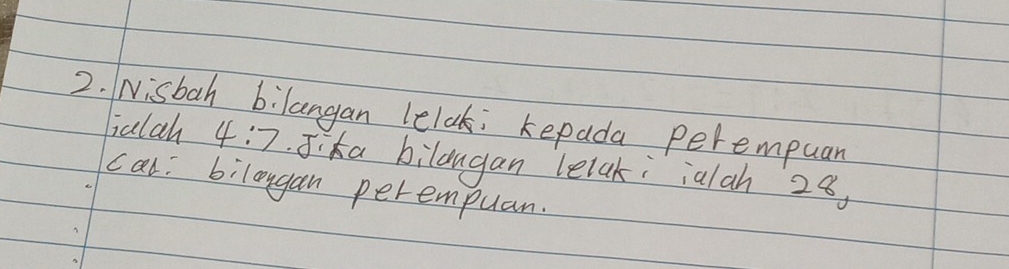 2. Nisbah bilangan lelaki kepada perempuan
ialah 4:7. Jika bilangan lelaki ialah 28,
cari bilangan perempuan.